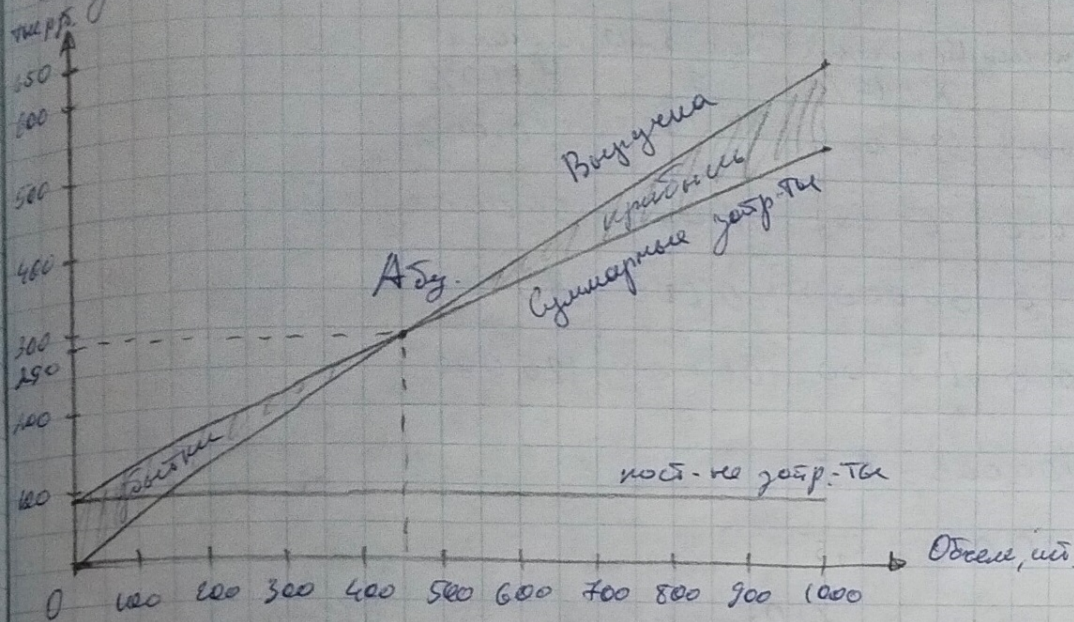 тыс руб.
650
600
500
400
300
290
200
100
Выручка
прибыль
Суммарные затр-ты
А бу.
убытки
пост-не затр-ты
Объем, шт.
0 100 200 300 400 500 600 700 800 900 1000